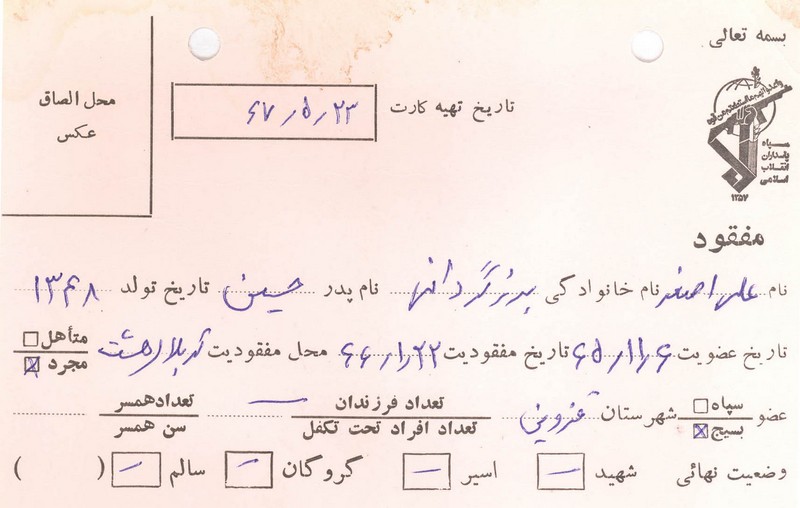 بسمه تعالی
محل الصاق
عکس
تاریخ تهیه کارت ۶۷٫۵٫۲۳
سپاه
پاسداران
انقلاب
اسلامی
۱۳۵۷
مفقود
نام علی اصغر نام خانوادگی نام پدر حسین تاریخ تولد ۱۳۴۸
تاریخ عضویت ۶۵٫۱۱٫۶ تاریخ مفقودیت ۶۶٫۱٫۲۲ محل مفقودیت کربلا۸ متأهل مجرد
عضو سپاه بسیج شهرستان قزوین تعداد فرزندان — تعداد افراد تحت تکفل تعداد همسر سن همسر
وضعیت نهائی شهید — اسیر — گروگان — سالم — ( )